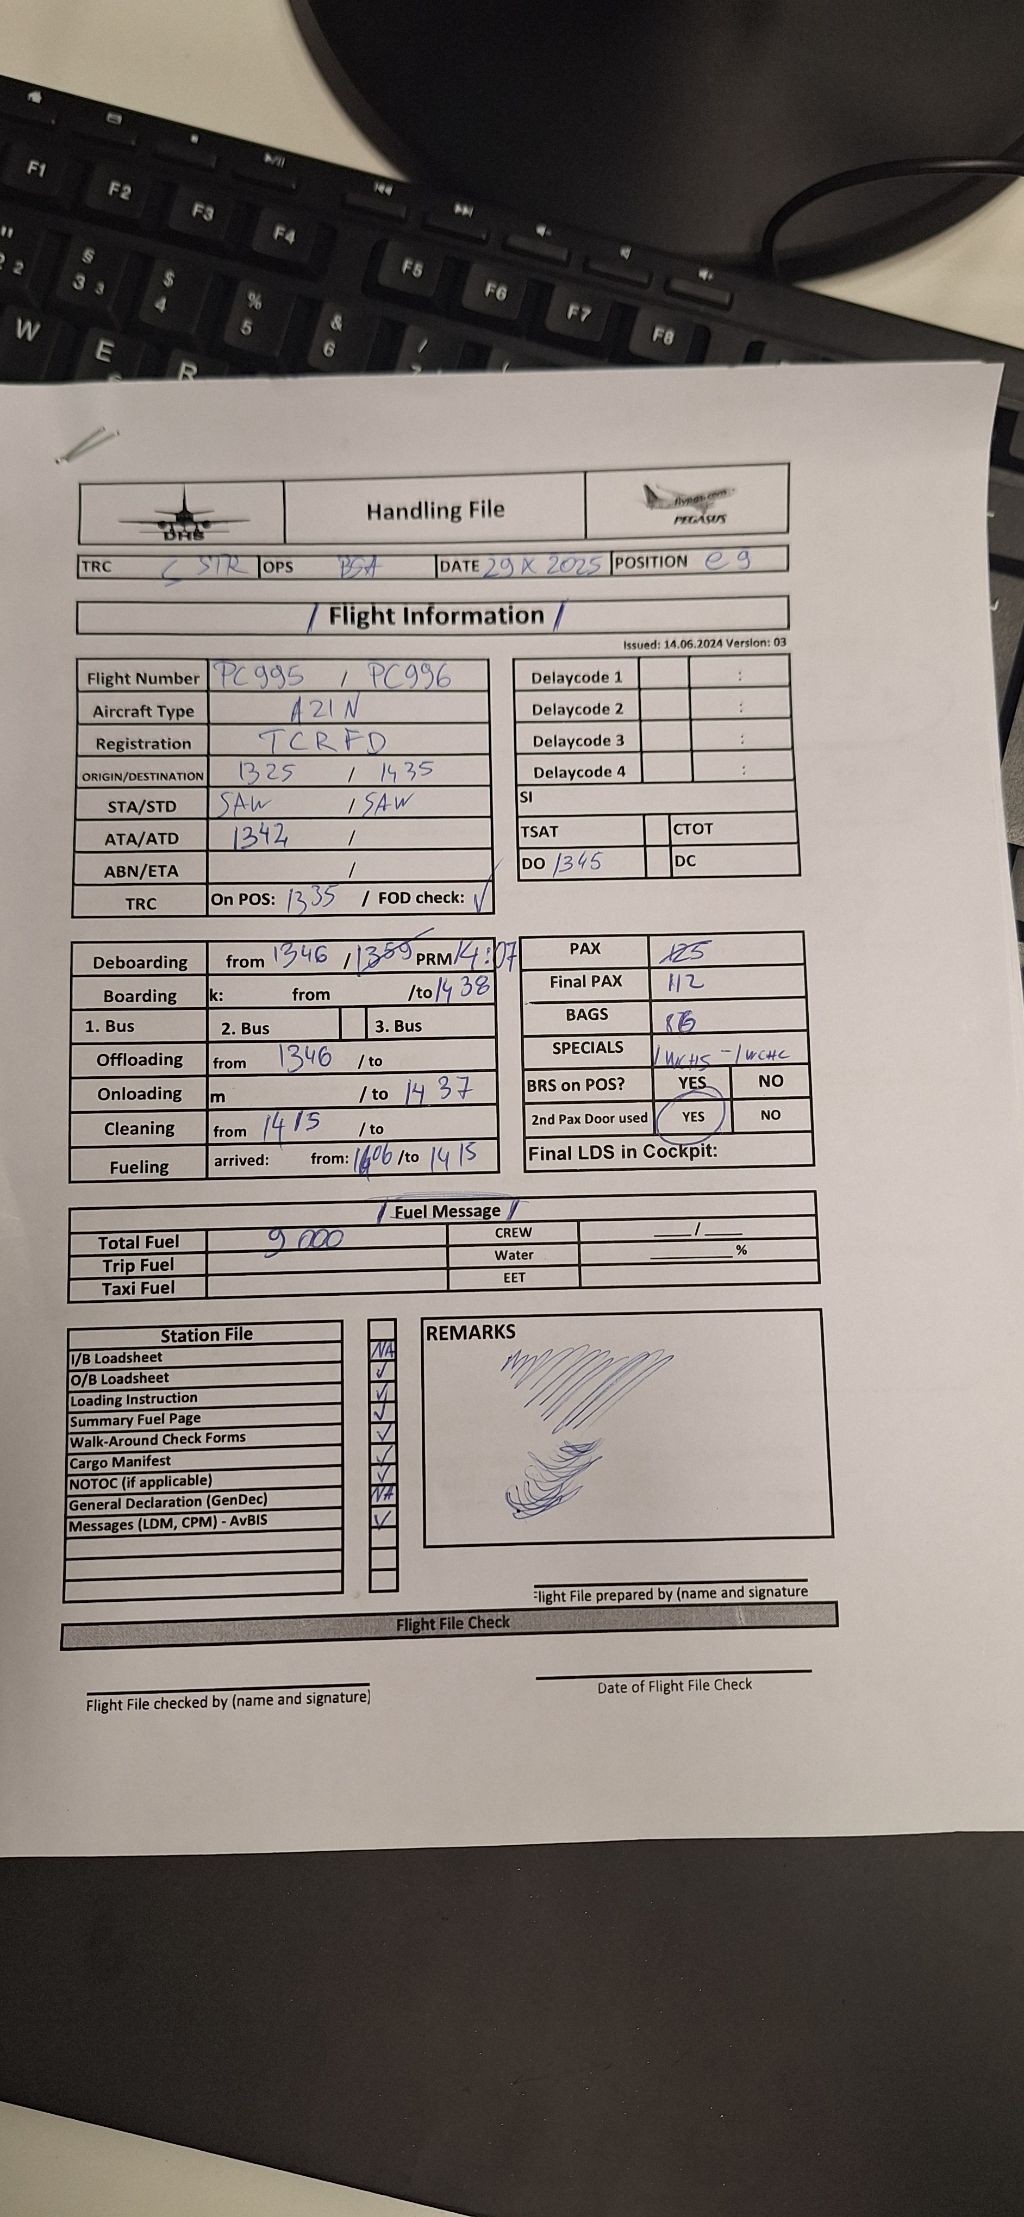 F1 F2 F3 F4 F5 F6 F7 F8
" 2 2 § 3 3 $ 4 % 5 & 6 /
W E R
DHS Handling File flypgs.com PEGASUS
TRC STR OPS BSA DATE 29 X 2025 POSITION e 9
/ Flight Information /
Issued: 14.06.2024 Version: 03
Flight Number PC995 / PC996
Aircraft Type A21N
Registration TCRFD
ORIGIN/DESTINATION 1325 / 1435
STA/STD SAW / SAW
ATA/ATD 1342 /
ABN/ETA /
TRC On POS: 1335 / FOD check: ✓
Delaycode 1 :
Delaycode 2 :
Delaycode 3 :
Delaycode 4 :
SI
TSAT CTOT
DO 1345 DC
Deboarding from 1346 / 1359 PRM 14:07
Boarding k: from /to 14 38
1. Bus 2. Bus 3. Bus
Offloading from 1346 / to
Onloading m / to 14 37
Cleaning from 1415 / to
Fueling arrived: from: 1406 /to 1415
PAX 125
Final PAX 112
BAGS 86
SPECIALS 1 WCHS - 1 WCHC
BRS on POS? YES NO
2nd Pax Door used YES NO
Final LDS in Cockpit:
/ Fuel Message /
Total Fuel 9 000 CREW ____/____
Trip Fuel Water ________%
Taxi Fuel EET
Station File
I/B Loadsheet NA
O/B Loadsheet ✓
Loading Instruction ✓
Summary Fuel Page ✓
Walk-Around Check Forms ✓
Cargo Manifest ✓
NOTOC (if applicable) ✓
General Declaration (GenDec) NA
Messages (LDM, CPM) - AvBIS ✓
REMARKS
Flight File prepared by (name and signature
Flight File Check
Flight File checked by (name and signature)
Date of Flight File Check